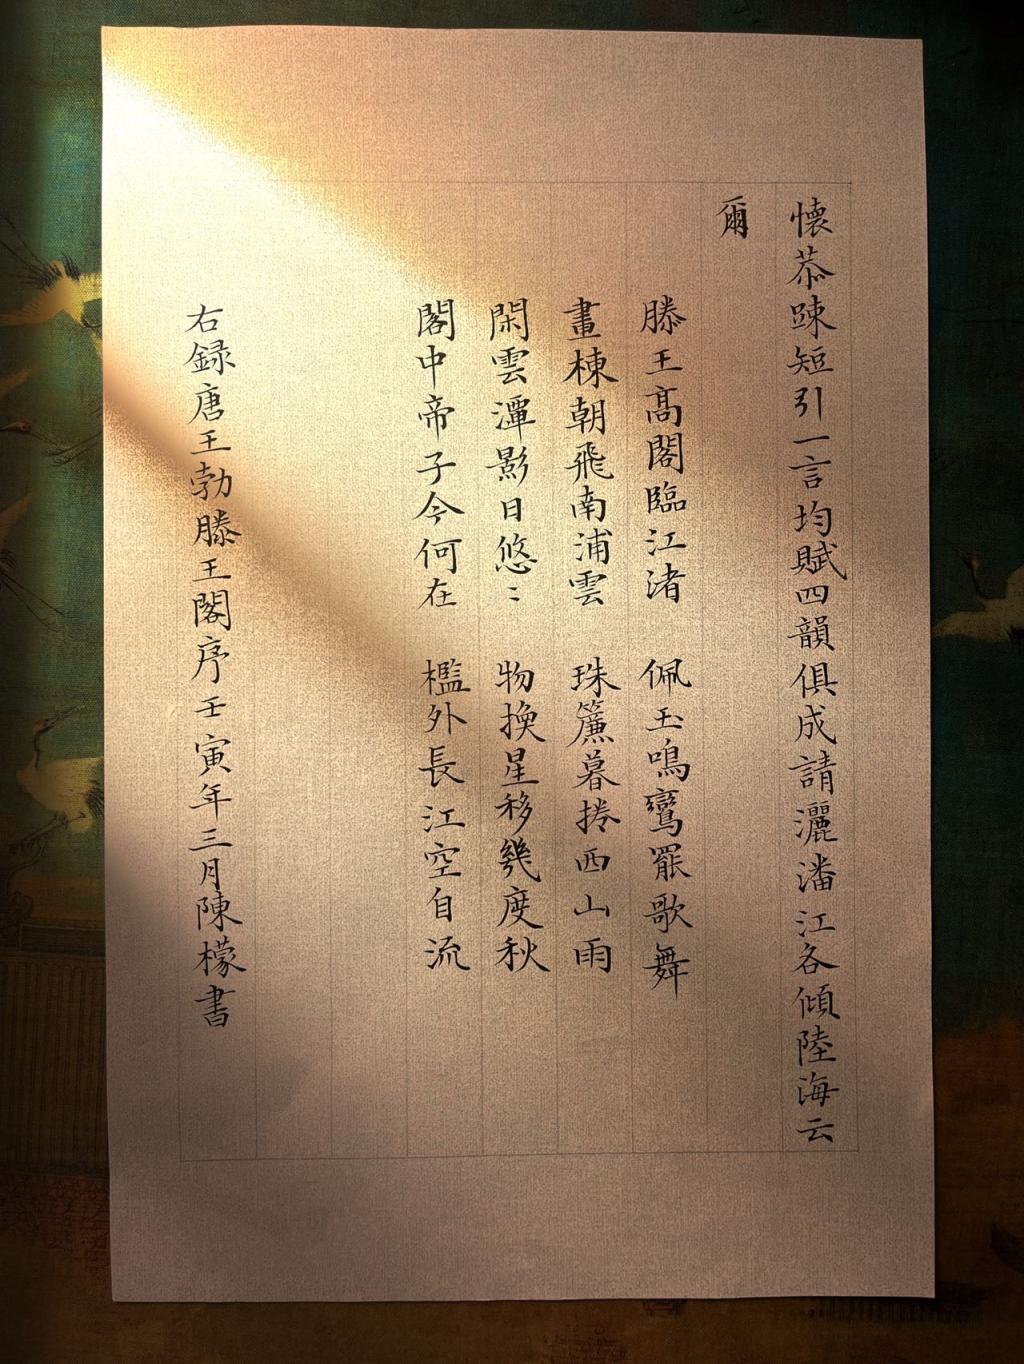 懷恭踈短引一言均賦四韻俱成請灑潘江各傾陸海云
爾
滕王高閣臨江渚 佩玉鳴鸞罷歌舞
畫棟朝飛南浦雲 珠簾暮捲西山雨
閑雲潭影日悠〻 物換星移幾度秋
閣中帝子今何在 檻外長江空自流
右録唐王勃滕王閣序壬寅年三月陳檬書